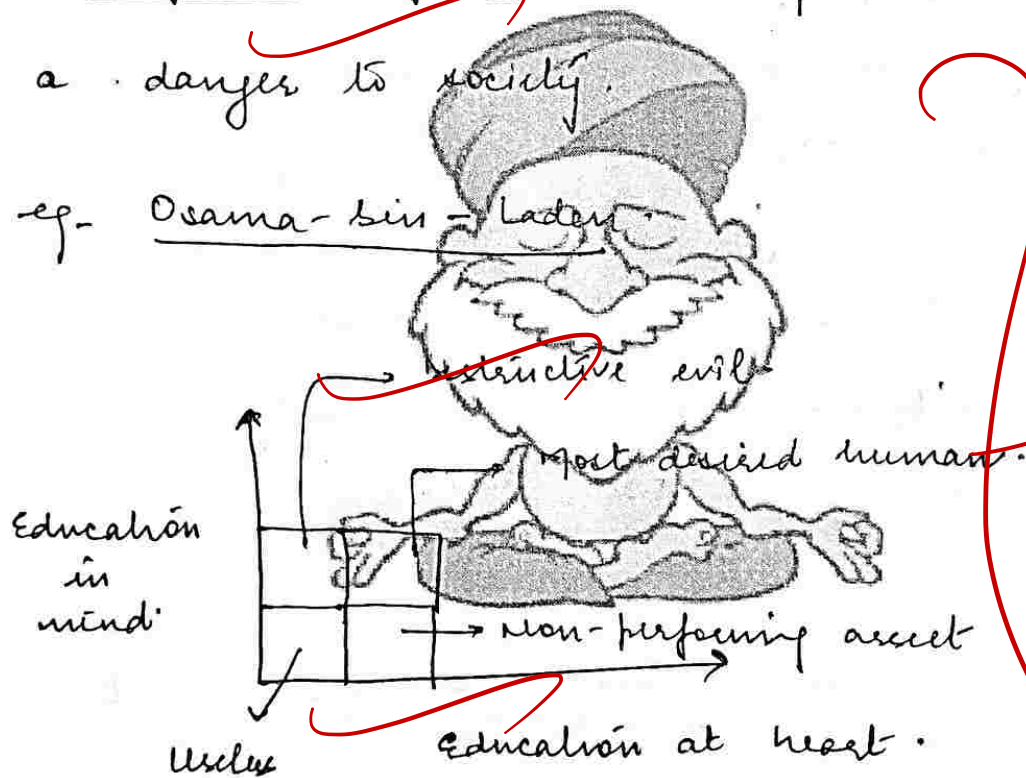 a danger to society.
eg- Osama-bin-Laden.
destructive evil
Most desired human.
Education
in
mind
Non-performing asset
Useless
Education at heart.